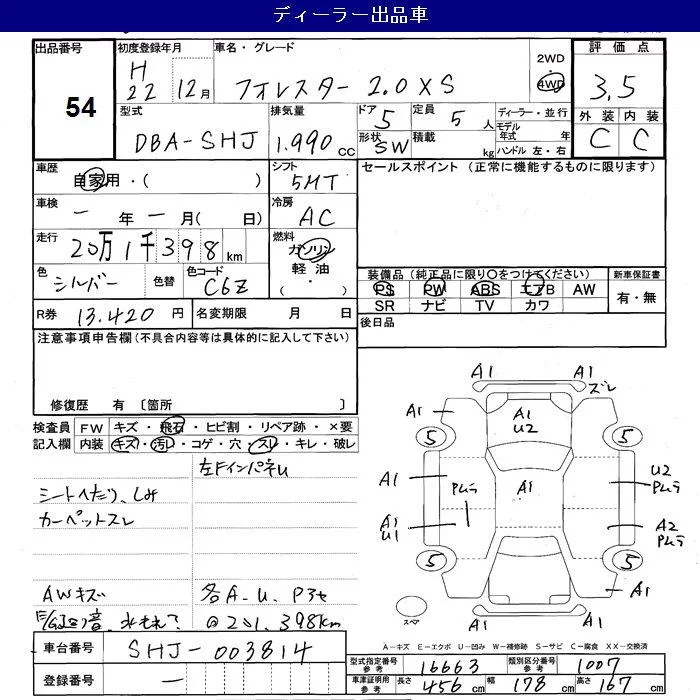 ディーラー出品車
出品番号 54
初度登録年月 H22 12月
車名・グレード フォレスター 2.0XS
2WD
4WD
評価点 3.5
外装 C 内装 C
型式 DBA-SHJ
排気量 1.990 cc
ドア 5 定員 5 人
形状 SW 積載 kg
ディーラー・並行
モデル年式 年
ハンドル 左・右
車歴 自家用・( )
シフト 5MT
セールスポイント (正常に機能するものに限ります)
車検 — 年 — 月( 日)
冷房 AC
走行 20万1千398 km
燃料 ガソリン
軽油
( )
色 シルバー 色替
色コード C6Z
装備品 (純正品に限り○をつけてください)
PS PW ABS エアB AW
SR ナビ TV カワ
新車保証書
有・無
R券 13.420 円 名変期限 月 日
後日品
注意事項申告欄 (不具合内容等は具体的に記入して下さい)
修復歴 有 〔箇所 〕
検査員記入欄
FW キズ・飛石・ヒビ割・リペア跡・×要
内装 キズ・汚れ・コゲ・穴・スレ・キレ・破レ
左FインパネU
シートへたり、しみ
カーペットスレ
AWキズ 各A-U、Pヨセ
音、水もれ? @201.398km
A1 A1
ズレ
A1 A1
U2
5 5
A1 Pムラ A1 U2
Pムラ
A1
U1 A2
Pムラ
5 5
A1
スペア
A1 A1
A-キズ E-エクボ U-凹み W-補修跡 S-サビ C-腐食 XX-交換済
車台番号 SHJ-003814
登録番号
型式指定番号 参考 16663 類別区分番号 参考 1007
車庫証明用 参考 長さ 456 cm 幅 178 cm 高さ 167 cm